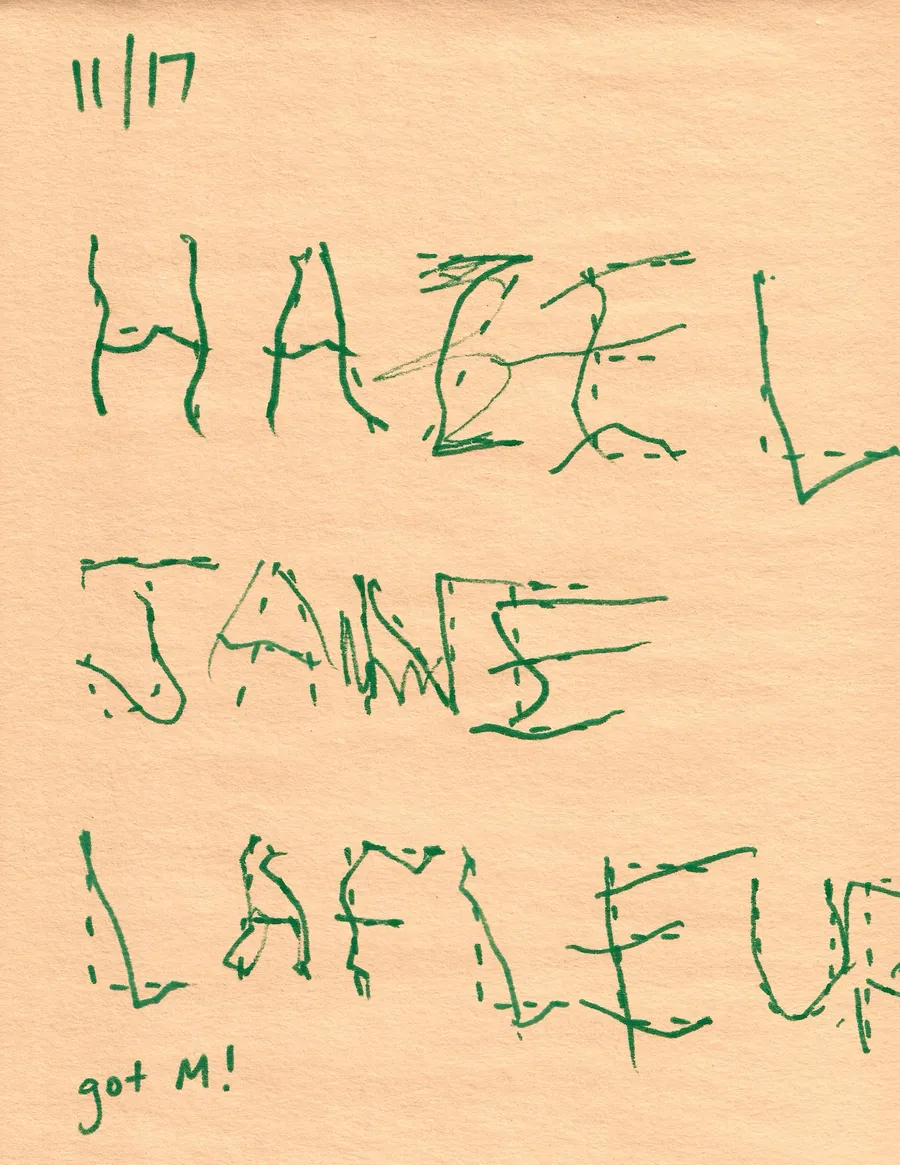 11/17
HAZEL
JANE
LAFLEUR
got M!